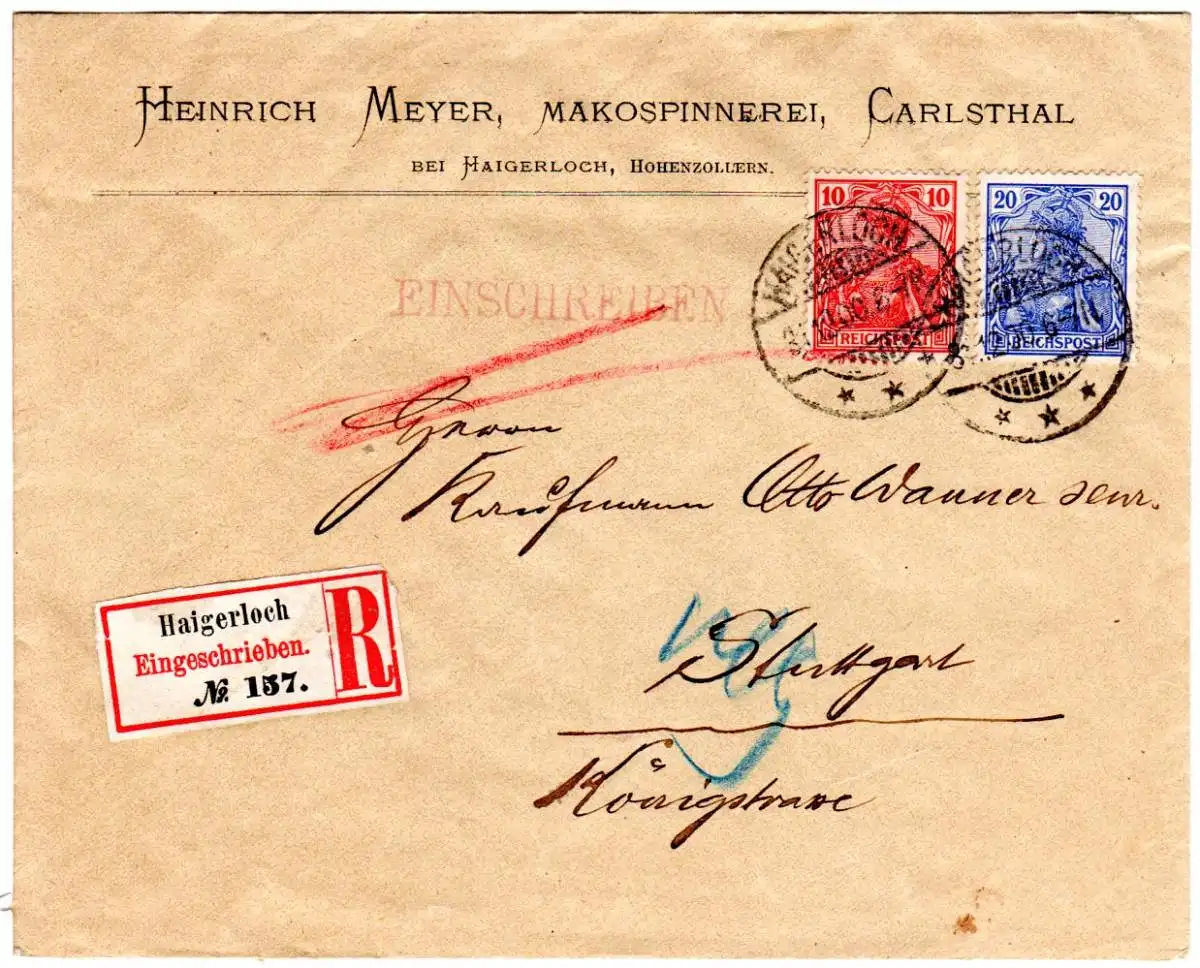 HEINRICH MEYER, MAKOSPINNEREI, CARLSTHAL
BEI HAIGERLOCH, HOHENZOLLERN.
10 10
REICHSPOST
20 20
REICHSPOST
HAIGERLOCH
HAIGERLOCH
EINSCHREIBEN
Herrn
Kaufmann Otto Wanner senr.
Stuttgart
Königstrasse
Haigerloch
Eingeschrieben.
№ 157.
R